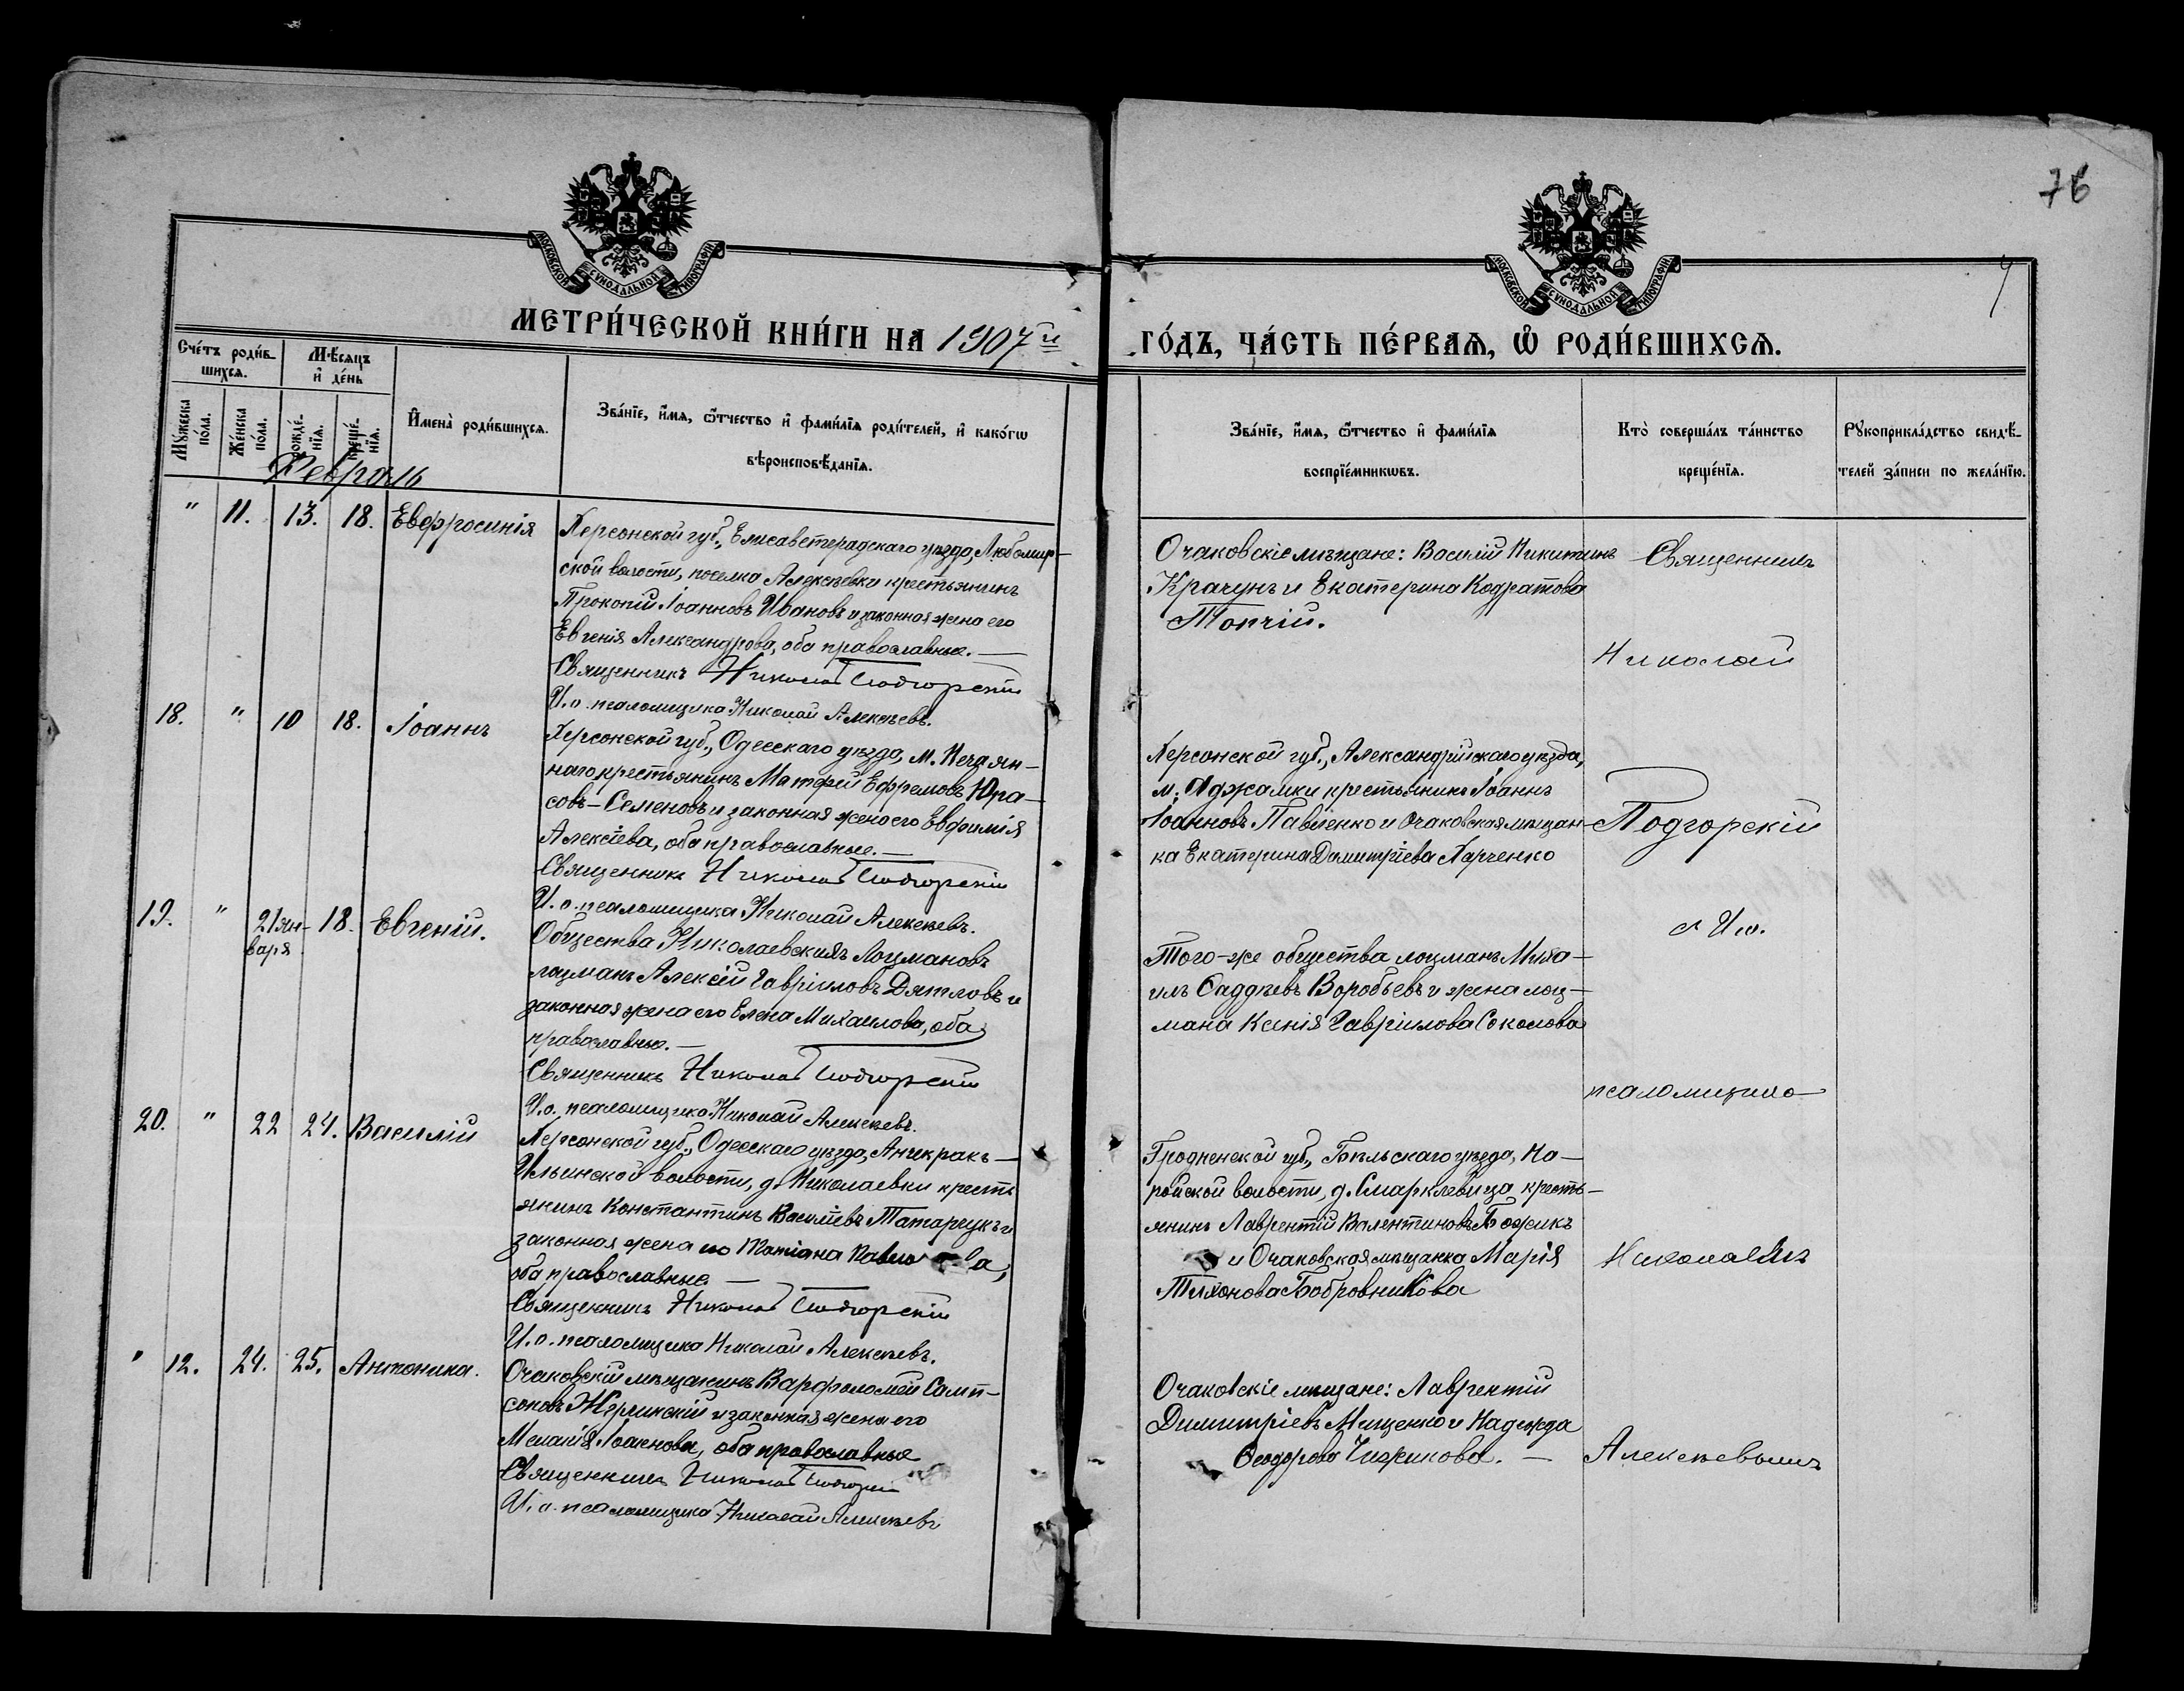 76
4
МОСКОВСКОЙ СѴНОДАЛЬНОЙ ТИПОГРАФІИ
МОСКОВСКОЙ СѴНОДАЛЬНОЙ ТИПОГРАФІИ
МЕТРИ́ЧЕСКОЙ КНИ́ГИ НА 1907й
ГО́ДЪ, ЧА́СТЬ ПЕ́РВАѦ, Ѡ҆ РОДИ́ВШИХСѦ.
Сче́тъ роди́в-
шихсѧ.
Мѣ́сѧцъ
и҆ де́нь
Мꙋ́жеска
по́ла.
Же́нска
по́ла.
рожде́-
нїѧ.
креще́-
нїѧ.
И҆мена̀ роди́вшихсѧ.
Зва́нїе, и҆́мѧ, ѻ҆́тчество и҆ фами́лїѧ роди́телей, и҆ како́гѡ
вѣроисповѣ́данїѧ.
Зва́нїе, и҆́мѧ, ѻ҆́тчество и҆ фами́лїѧ
воспрїе́мникѡвъ.
Кто̀ соверша́лъ та́инство
креще́нїѧ.
Рꙋкоприкла́дство свидѣ́-
телей за́писи по жела́нїю.
Февраль
" 11. 13. 18. Евфросинія
Херсонской губ., Елисаветградскаго уѣзда, Любомир-
ской волости, поселка Алексѣевки крестьянинъ
Прокопій Іоанновъ Ивановъ и законная жена его
Евгенія Александрова, оба православные. —
Священникъ Николай Подгорскій
И. о. псаломщика Николай Алексѣевъ.
Очаковскіе мѣщане: Василій Никитинъ
Крачунъ и Екатерина Кодратова
Топчій.
Священникъ
Николай
18. " 10 18. Іоаннъ
Херсонской губ., Одесскаго уѣзда, м. Нечаян-
наго крестьянинъ Матфей Ефремовъ Юра-
совъ-Семеновъ и законная жена его Евфимія
Алексіева, оба православные. —
Священникъ Николай Подгорскій
И. о. псаломщика Николай Алексѣевъ.
Херсонской губ., Александрійскаго уѣзда,
м. Аджамки крестьянинъ Іоаннъ
Іоанновъ Павленко и Очаковская мѣщан-
ка Екатерина Димитріева Харченко
Подгорскій
19. " 21 ян-
варя 18. Евгеній.
Общества Николаевскихъ Лоцмановъ
лоцманъ Алексій Гавріиловъ Дятловъ и
законная жена его Елена Михаилова, оба
православные. —
Священникъ Николай Подгорскій
И. о. псаломщика Николай Алексѣевъ.
Того-же общества лоцманъ Миха-
илъ Фаддѣевъ Воробьевъ и жена лоц-
мана Ксенія Гавріилова Соколова
с И. о.
псаломщика
20. " 22 24. Василій
Херсонской губ., Одесскаго уѣзда, Анчекракъ-
Ильинской волости, д. Николаевки кресть
янинъ Константинъ Василіевъ Татарчукъ и
законная жена его Татіана
оба православные —
Священникъ Николай Подгорскій
И. о. псаломщика Николай Алексѣевъ.
Гродненской губ., Бѣльскаго уѣзда, На-
ройской волости, д. кресть-
янинъ Лаврентій Валентиновъ Божикъ
и Очаковская мѣщанка Марія
Тихонова Бобровникова
Николаемъ
" 12. 24. 25. Антонина.
Очаковскій мѣщанинъ Варфоломей Самп-
соновъ и законная жена его
Меланія Іоаннова, оба православные
Священникъ Николай Подгорскій
И. о. псаломщика Николай Алексѣевъ
Очаковскіе мѣщане: Лаврентій
Димитріевъ Мищенко и Надежда
Ѳеодорова Чижикова. —
Алексѣевымъ